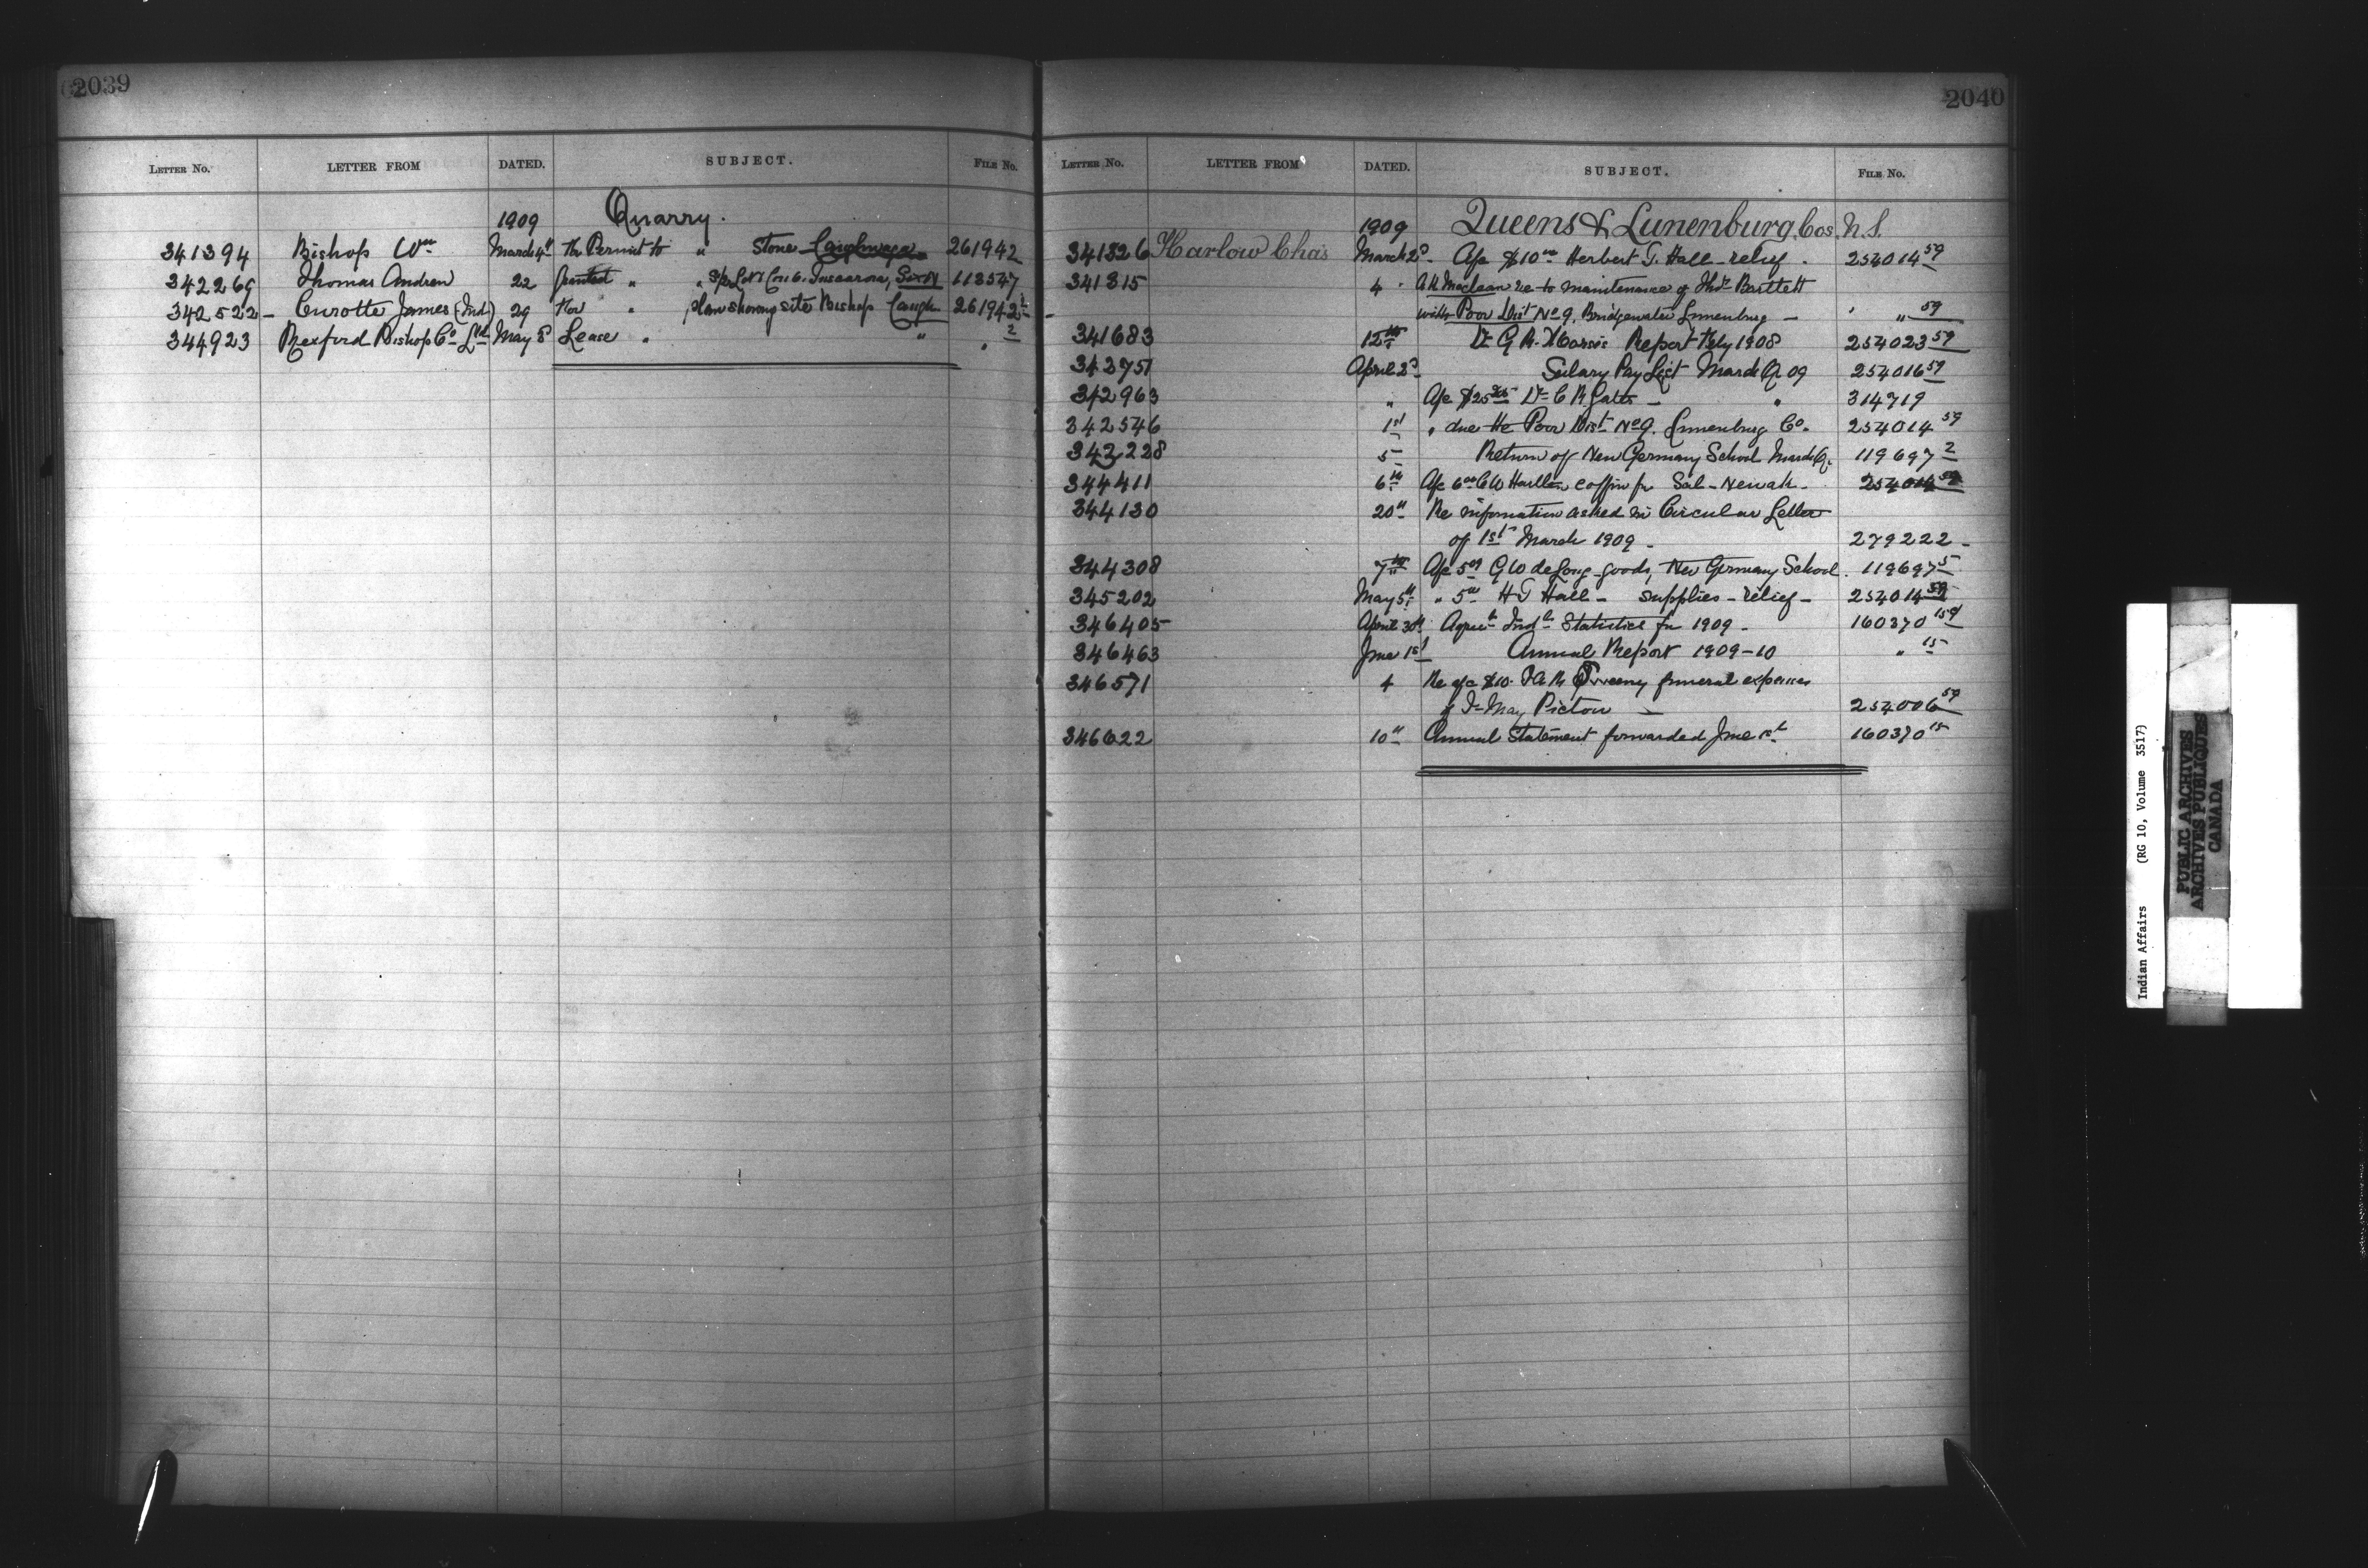 2039
LETTER No. LETTER FROM DATED. SUBJECT. FILE No.
1909 Quarry.
341394 Bishop Wm March 4th Permit to " Stone Caughnawaga 261942
342269 Thomas Andrew 22 " " Lot 1 Con 6. Tuscarora, Six N 113547
342522 – Curotte James (Ind) 29 " plan showing site Bishop Caugh. 261942
344923 Rexford Bishop Co Ltd May 5 Lease " " " 2
2040
LETTER No. LETTER FROM DATED. SUBJECT. FILE No.
1909 Queens & Lunenburg Cos. N.S.
341326 Harlow Chas March 2d A/c $10.00 Herbert T. Hall – relief. 254014 59
341315 4 A K Maclean re to maintenance of Thos Bartlett
with Poor Dist No 9, Bridgewater Lunenburg – " " 59
341683 12th Dr G R Report Feby 1908 254023 59
342751 April 2d Salary Pay List March Q 09 254016 59
342963 " A/c $25 Dr C R Gates – " 314719
342546 1st " due the Poor Dist No 9. Lunenburg Co. 254014 59
343228 5 Return of New Germany School March Q. 119697 2
344411 6th A/c 6.00 C W coffin for Sol – Newah – 254014 59
344130 20th Re information asked in Circular Letter
of 1st March 1909 – 279222 –
344308 7th A/c G W deLong – goods, New Germany School. 119697 5
345202 May 5th " 5.00 H T Hall – supplies – relief – 254014 59
346405 April 30th Agricl & Indl Statistics for 1909 – 160370
346463 June 1st Annual Report 1909–10 " 15
346571 4 Re a/c $10. Sweeny funeral expenses
of May Pictou – 254006 59
346622 10th Annual Statement forwarded June 1st 160370 15
Indian Affairs (RG 10, Volume 3517)
PUBLIC ARCHIVES
ARCHIVES PUBLIQUES
CANADA